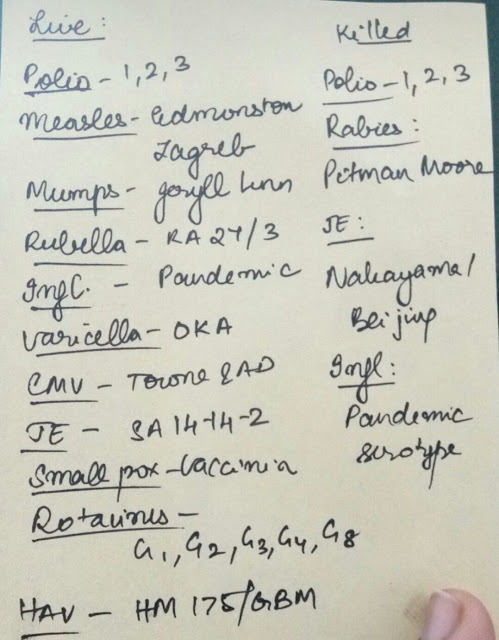 Live:
Polio - 1, 2, 3
Measles - Edmonston
Zagreb
Mumps - Jeryll Linn
Rubella - RA 27/3
Infl. - Pandemic
Varicella - OKA
CMV - Towne & AD
JE - SA 14-14-2
Small pox - Vaccinia
Rotavirus -
G1, G2, G3, G4, G8
HAV - HM 175/GBM
Killed
Polio - 1, 2, 3
Rabies:
Pitman Moore
JE:
Nakayama/
Beijing
Infl:
Pandemic
serotype